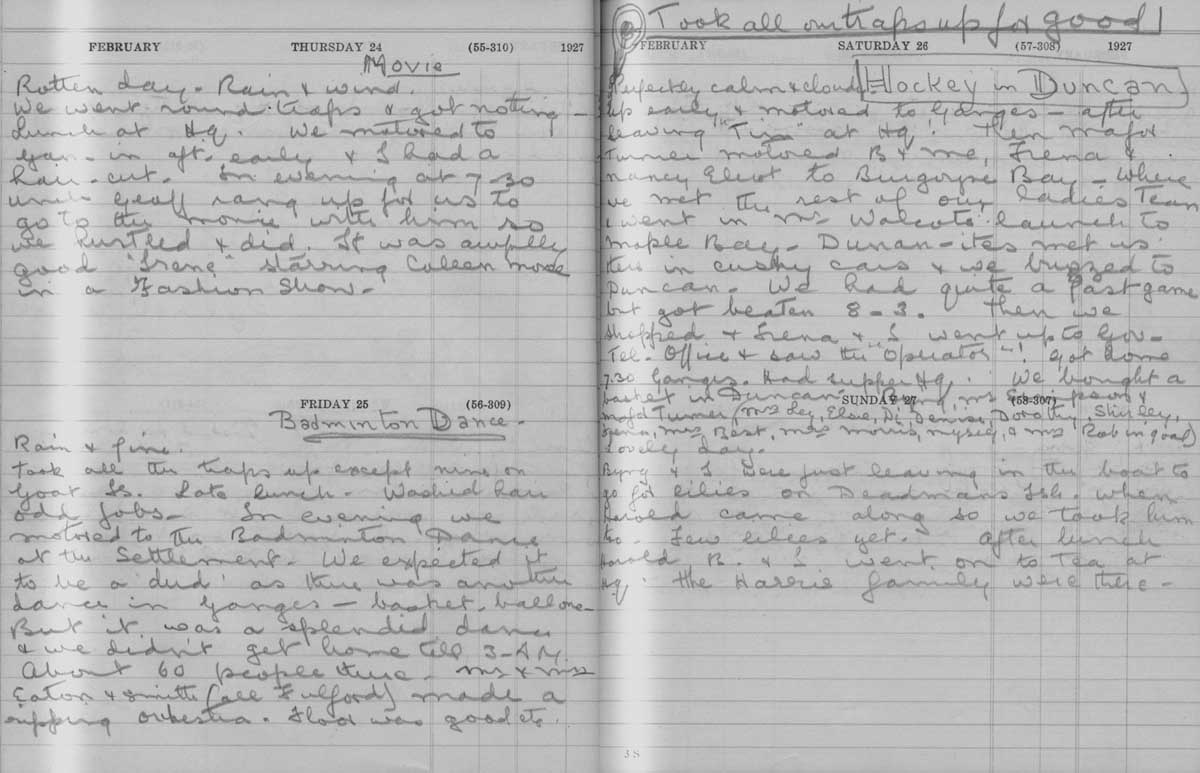 FEBRUARY THURSDAY 24 (55-310) 1927
Movie
Rotten day - Rain & wind.
We went round traps & got nothing -
Lunch at Hq. We motored to
Gan- in aft. early & I had a
hair-cut. In evening at 7-30
Uncle Geoff rang up for us to
go to the movie with him so
we hustled & did. It was awfully
good "Irene" starring Colleen Moore
in a Fashion Show.-
FRIDAY 25 (56-309)
Badminton Dance.-
Rain & fine.
Took all the traps up except nine on
Goat Is. Late lunch - Washed hair
odd jobs - In evening we
motored to the Badminton Dance
at the Settlement. We expected it
to be a 'dud' as there was another
dance in Ganges - basket-ball one -
But it was a splendid dance
& we didn't get home till 3-AM.
About 60 people there. Mr & Mrs
Eaton & Smith (all Fulford) made a
ripping orkestra. Floor was good etc.
Took all our traps up for good!
FEBRUARY SATURDAY 26 (57-308) 1927
Hockey in Duncan
Perfectly calm & cloudy
Up early & motored to Ganges - after
leaving "Tim" at Hq. Then Major
Turner motored B & me, Irena &
Nancy Eliot to Burgoyne Bay - where
we met the rest of our Ladies Team
& went in Mr Walcot's launch to
Maple Bay - Dunan-ites met us
there in cushy cars & we buzzed to
Duncan. We had quite a fast game
but got beaten 8-3. Then we
shopped & Irena & I went up to Gov-
Tel- Office & saw the "Operator"! Got home
7.30 Ganges. Had supper Hq. We bought a
basket in Duncan. Mrs Simpson &
Major Turner, (Mrs Ley, Elsie, Di, Denise, Dorothy, Shirley,
Irena, Mrs Best, Mrs Morris, myself, & Mrs Rob in goal)
SUNDAY 27 (58-307)
Lovely day.
Byng & I were just leaving in the boat to
go for lilies on Deadmans Isl. when
Harold came along so we took him
too - Few lilies yet. After lunch
Harold B. & I went on to Tea at
Hq. The Harris family were there -
38